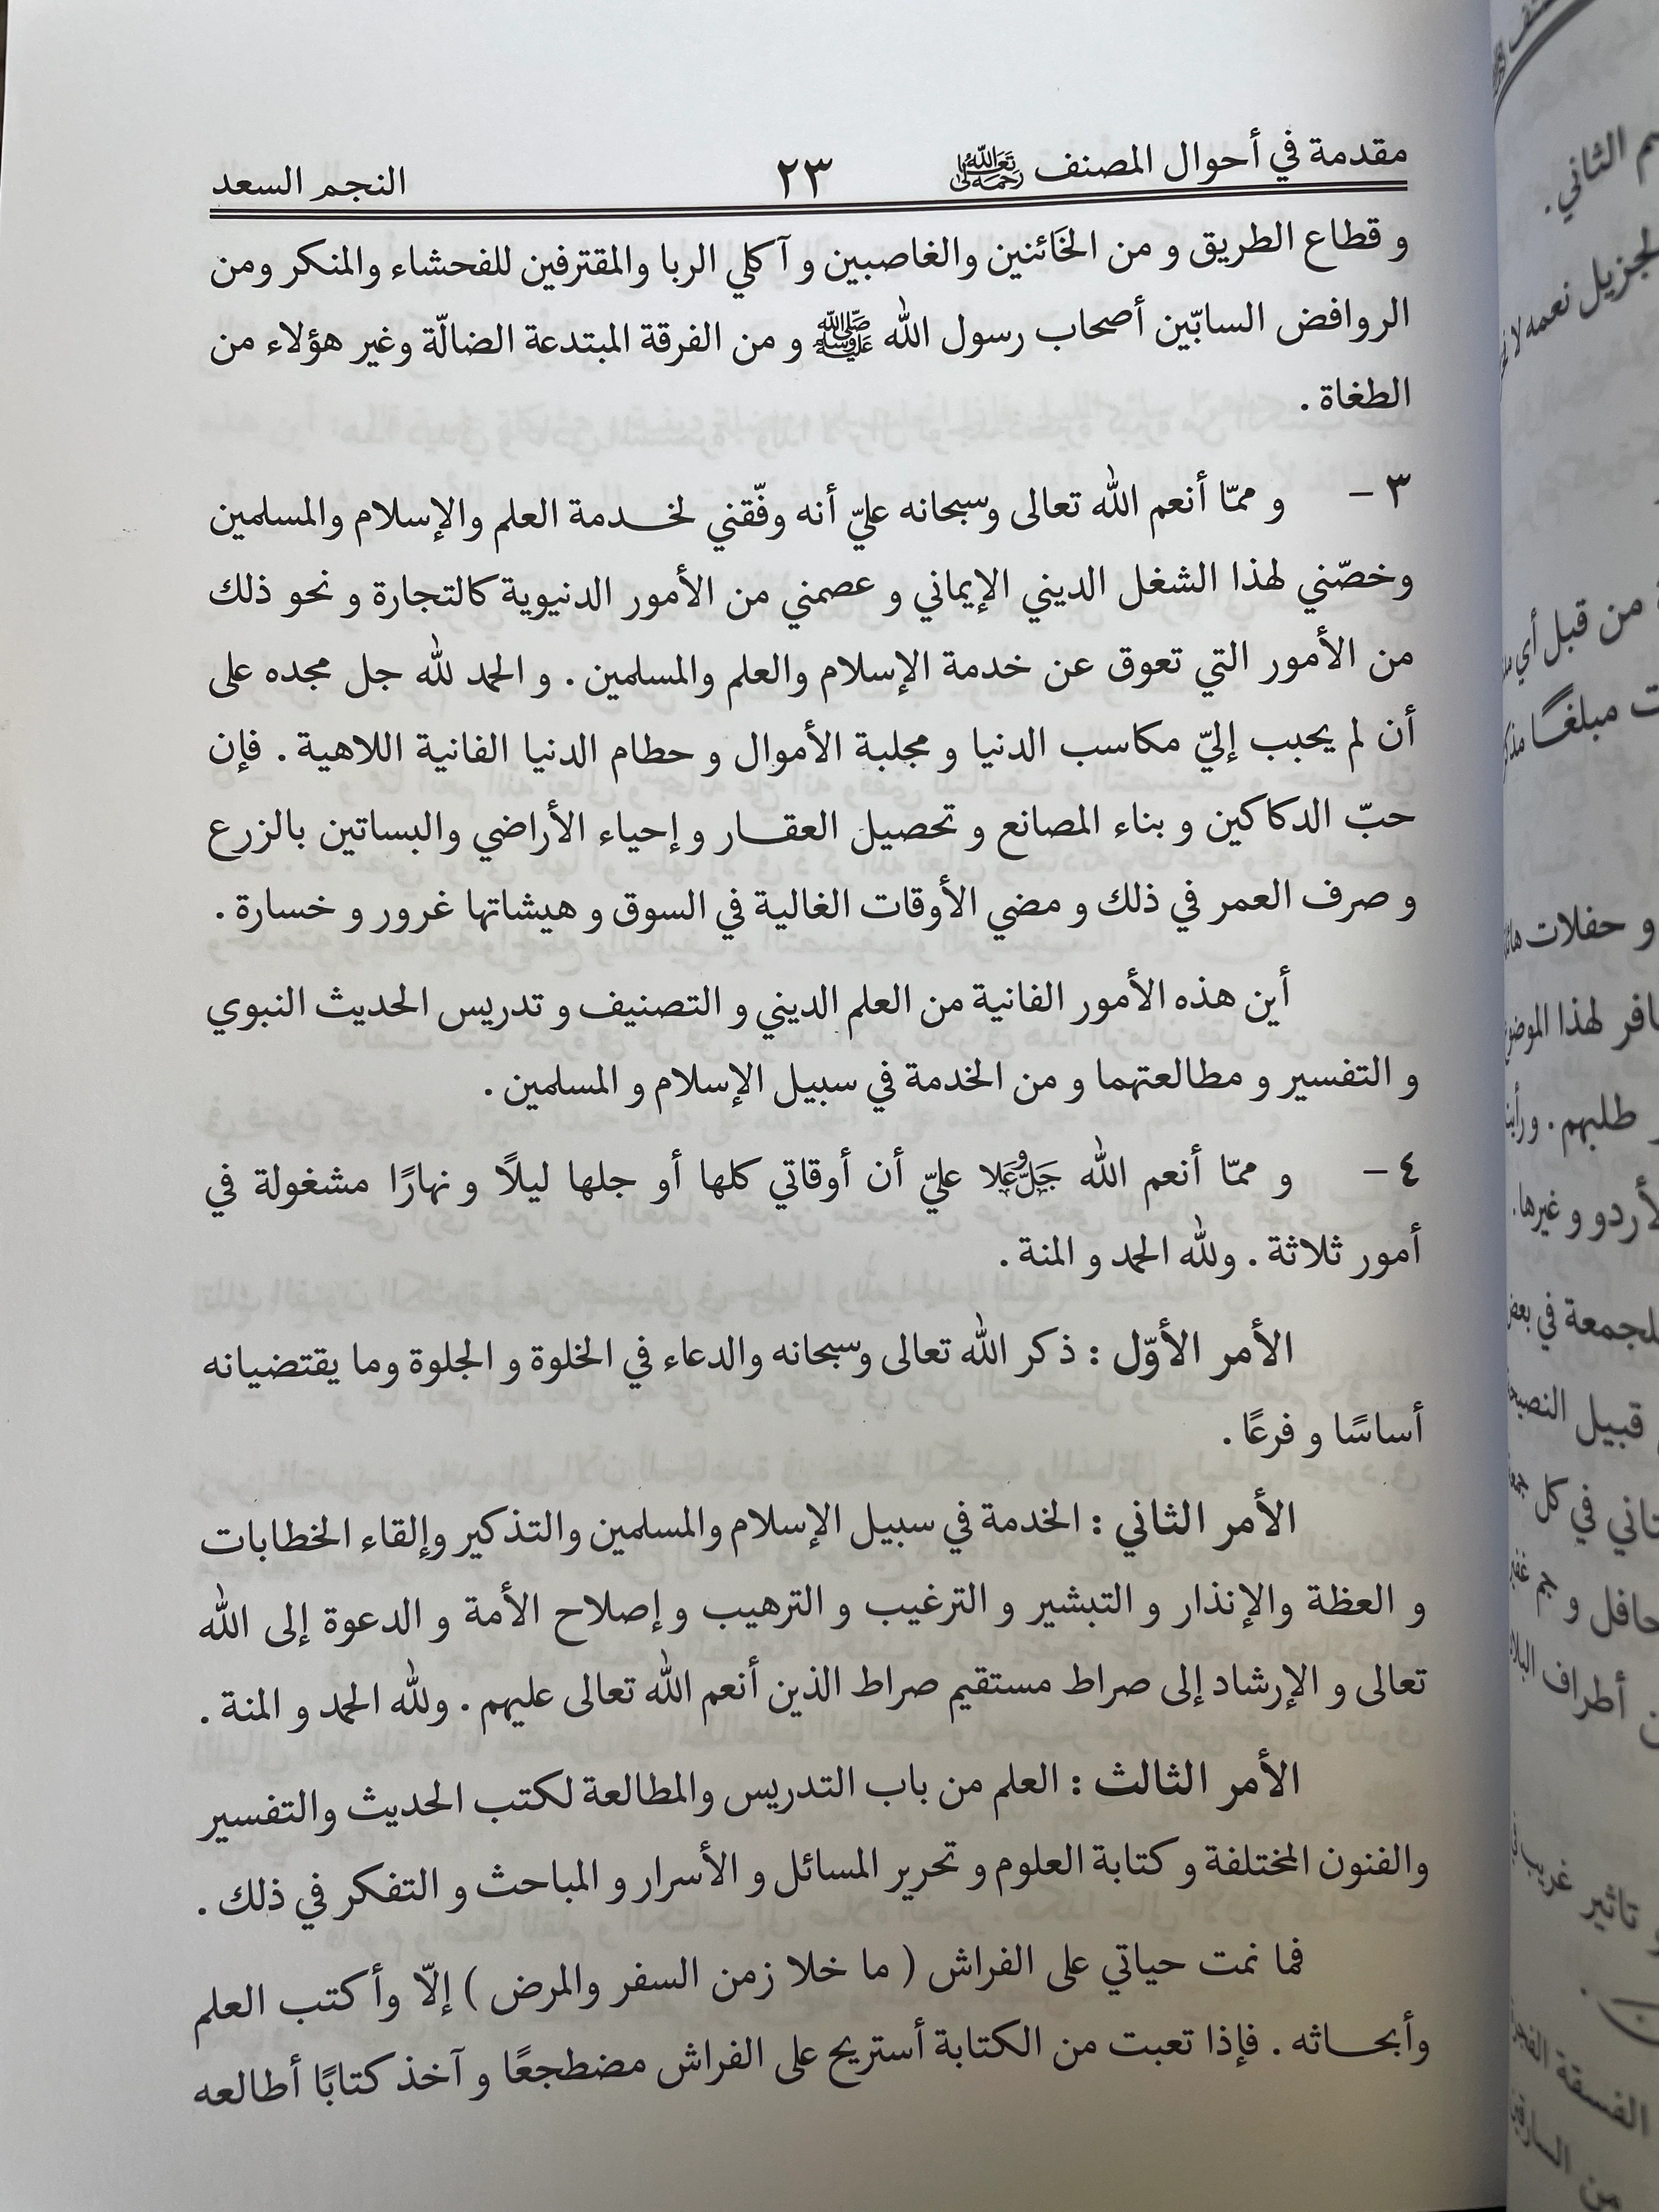 مقدمة في أحوال المصنف رحمه الله تعالى ٢٣ النجم السعد
و قطاع الطريق و من الخَائنين والغاصبين و آكلي الربا والمقترفين للفحشاء والمنكر ومن
الروافض السابّين أصحاب رسول الله ﷺ و من الفرقة المبتدعة الضالّة وغير هؤلاء من
الطغاة .
٣ – و ممّا أنعم الله تعالى وسبحانه عليّ أنه وفّقني لخـدمة العلم والإسلام والمسلمين
وخصّني لهذا الشغل الديني الإيماني و عصمني من الأمور الدنيوية كالتجارة و نحو ذلك
من الأمور التي تعوق عن خدمة الإسلام والعلم والمسلمين . و الحمد لله جل مجده على
أن لم يحبب إليّ مكاسب الدنيا و مجلبة الأموال و حطام الدنيا الفانية اللاهية . فإن
حبّ الدكاكين و بناء المصانع و تحصيل العقـار و إحياء الأراضي والبساتين بالزرع
و صرف العمر في ذلك و مضي الأوقات الغالية في السوق و هيشاتها غرور و خسارة .
أين هذه الأمور الفانية من العلم الديني و التصنيف و تدريس الحديث النبوي
و التفسير و مطالعتهما و من الخدمة في سبيل الإسلام و المسلمين .
٤ – و ممّا أنعم الله جَلَّ وَعَلا عليّ أن أوقاتي كلها أو جلها ليلًا و نهارًا مشغولة في
أمور ثلاثة . ولله الحمد و المنة .
الأمر الأوّل : ذكر الله تعالى وسبحانه والدعاء في الخلوة و الجلوة وما يقتضيانه
أساسًا و فرعًا .
الأمر الثاني : الخدمة في سبيل الإسلام والمسلمين والتذكير وإلقاء الخطابات
و العظة والإنذار و التبشير و الترغيب و الترهيب و إصلاح الأمة و الدعوة إلى الله
تعالى و الإرشاد إلى صراط مستقيم صراط الذين أنعم الله تعالى عليهم . ولله الحمد و المنة .
الأمر الثالث : العلم من باب التدريس والمطالعة لكتب الحديث والتفسير
والفنون المختلفة و كتابة العلوم و تحرير المسائل و الأسرار و المباحث و التفكر في ذلك .
فما نمت حياتي على الفراش ( ما خلا زمن السفر والمرض ) إلّا وأكتب العلم
وأبحـاثه . فإذا تعبت من الكتابة أستريح على الفراش مضطجعًا و آخذ كتابًا أطالعه